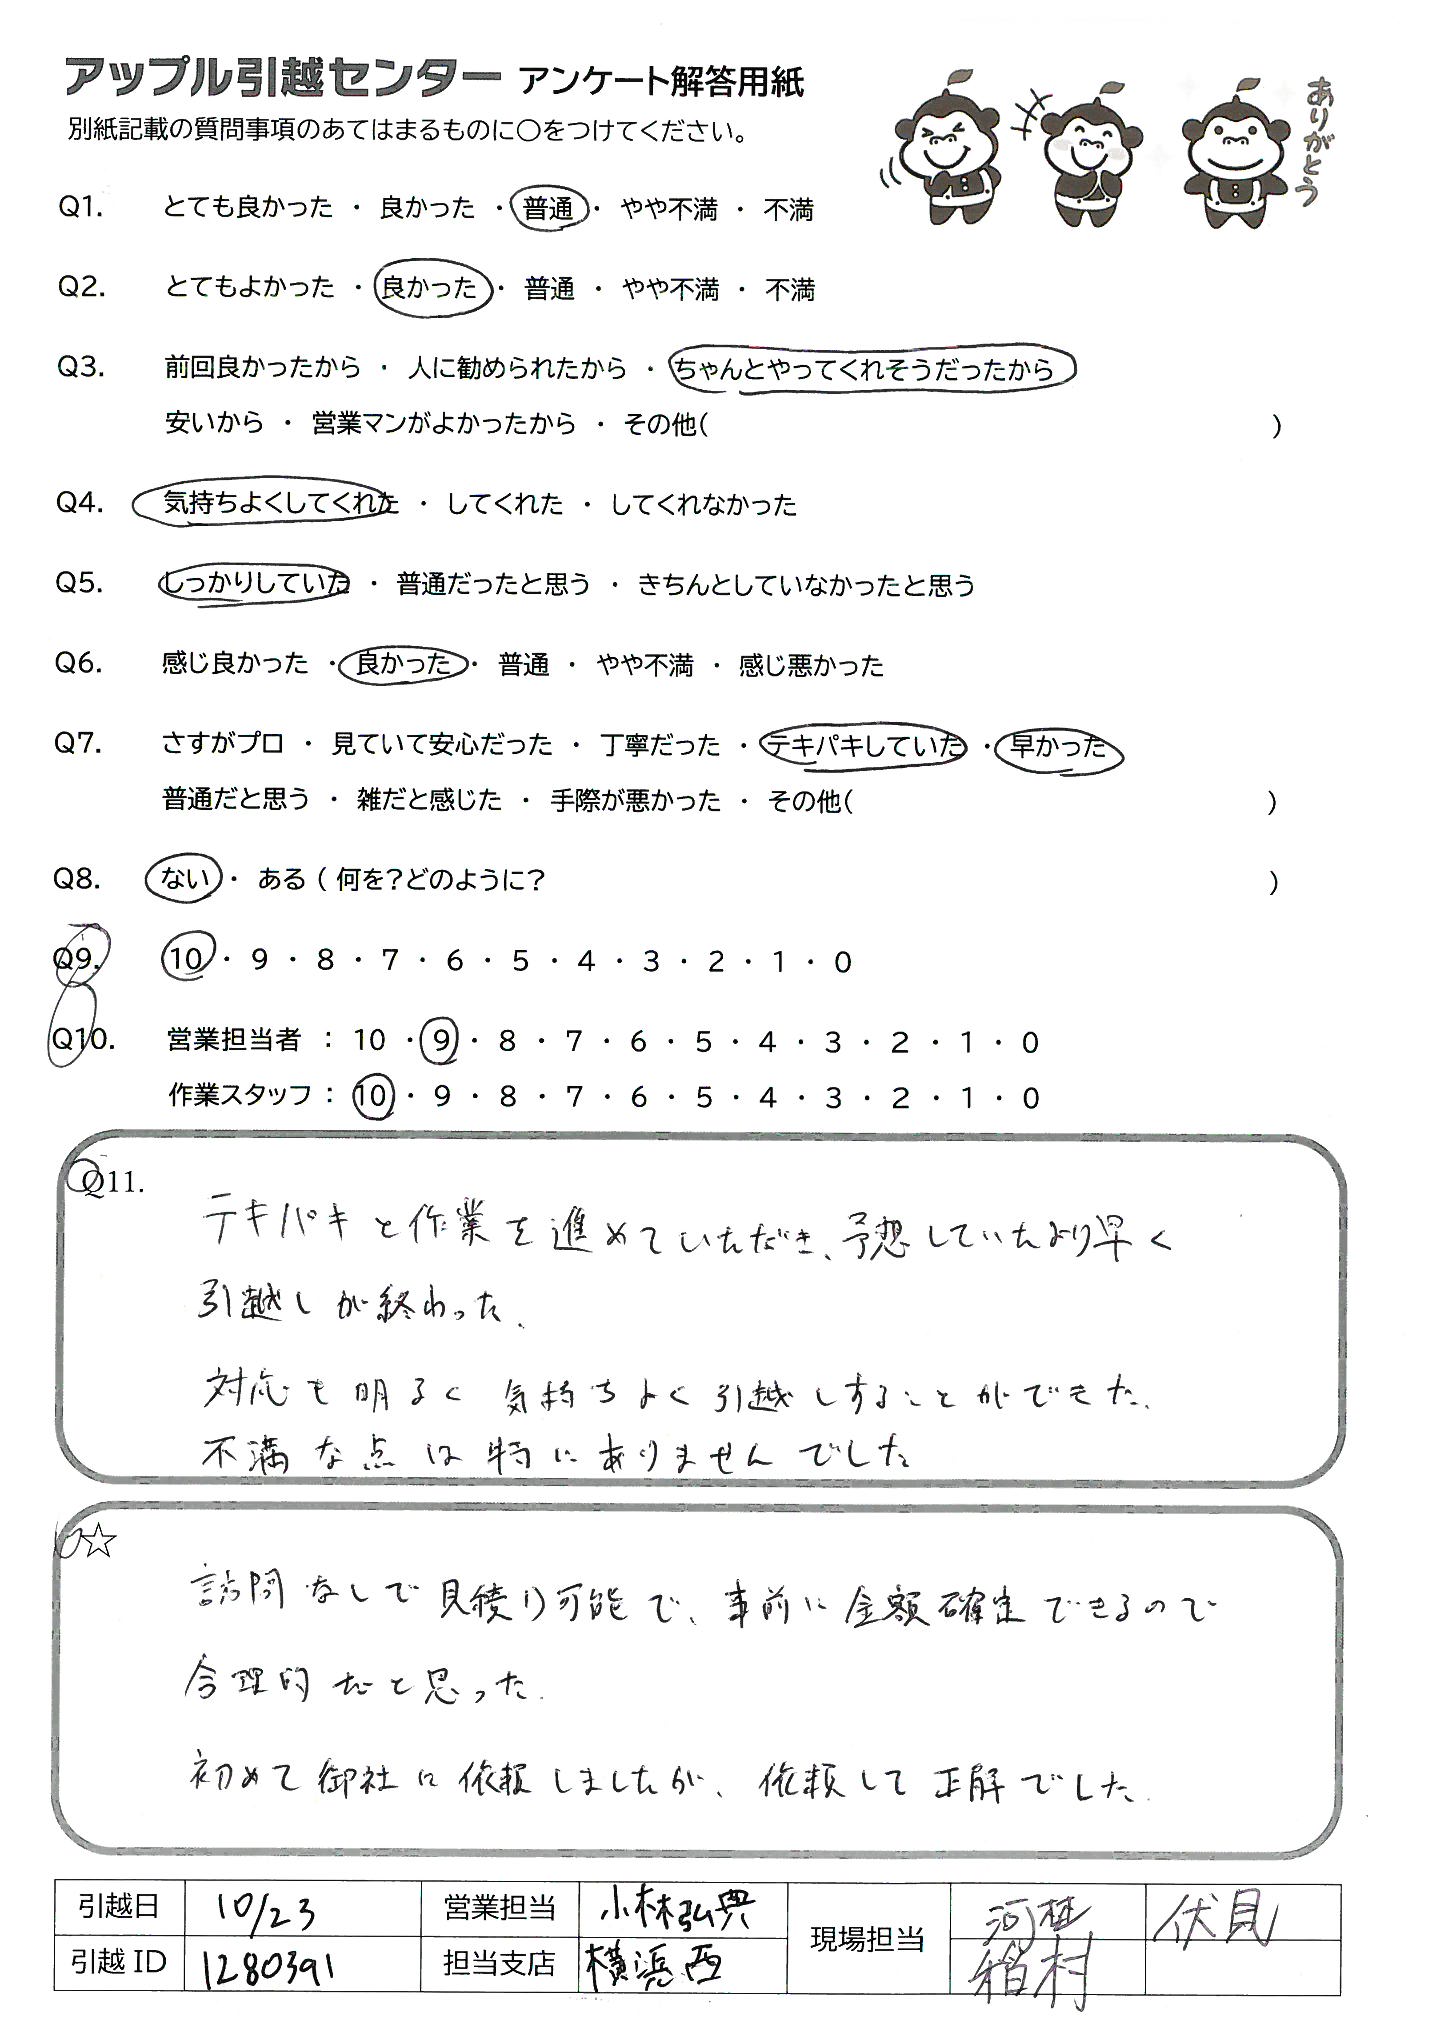 アップル引越センター アンケート解答用紙
別紙記載の質問事項のあてはまるものに○をつけてください。
ありがとう
Q1. とても良かった ・ 良かった ・ 普通 ・ やや不満 ・ 不満
Q2. とてもよかった ・ 良かった ・ 普通 ・ やや不満 ・ 不満
Q3. 前回良かったから ・ 人に勧められたから ・ ちゃんとやってくれそうだったから
安いから ・ 営業マンがよかったから ・ その他( )
Q4. 気持ちよくしてくれた ・ してくれた ・ してくれなかった
Q5. しっかりしていた ・ 普通だったと思う ・ きちんとしていなかったと思う
Q6. 感じ良かった ・ 良かった ・ 普通 ・ やや不満 ・ 感じ悪かった
Q7. さすがプロ ・ 見ていて安心だった ・ 丁寧だった ・ テキパキしていた ・ 早かった
普通だと思う ・ 雑だと感じた ・ 手際が悪かった ・ その他( )
Q8. ない ・ ある ( 何を?どのように? )
Q9. 10 ・ 9 ・ 8 ・ 7 ・ 6 ・ 5 ・ 4 ・ 3 ・ 2 ・ 1 ・ 0
Q10. 営業担当者 : 10 ・ 9 ・ 8 ・ 7 ・ 6 ・ 5 ・ 4 ・ 3 ・ 2 ・ 1 ・ 0
作業スタッフ : 10 ・ 9 ・ 8 ・ 7 ・ 6 ・ 5 ・ 4 ・ 3 ・ 2 ・ 1 ・ 0
Q11.
テキパキと作業を進めていただき、予想していたより早く
引越しが終わった.
対応も明るく 気持ちよく引越しすることができた.
不満な点は特にありませんでした
☆
訪問なしで見積り可能で、事前に金額確定できるので
合理的だと思った.
初めて御社に依頼しましたが、依頼して正解でした.
引越日 10/23 営業担当 小林弘典 現場担当 伏見
引越ID 1280391 担当支店 横浜西 稲村